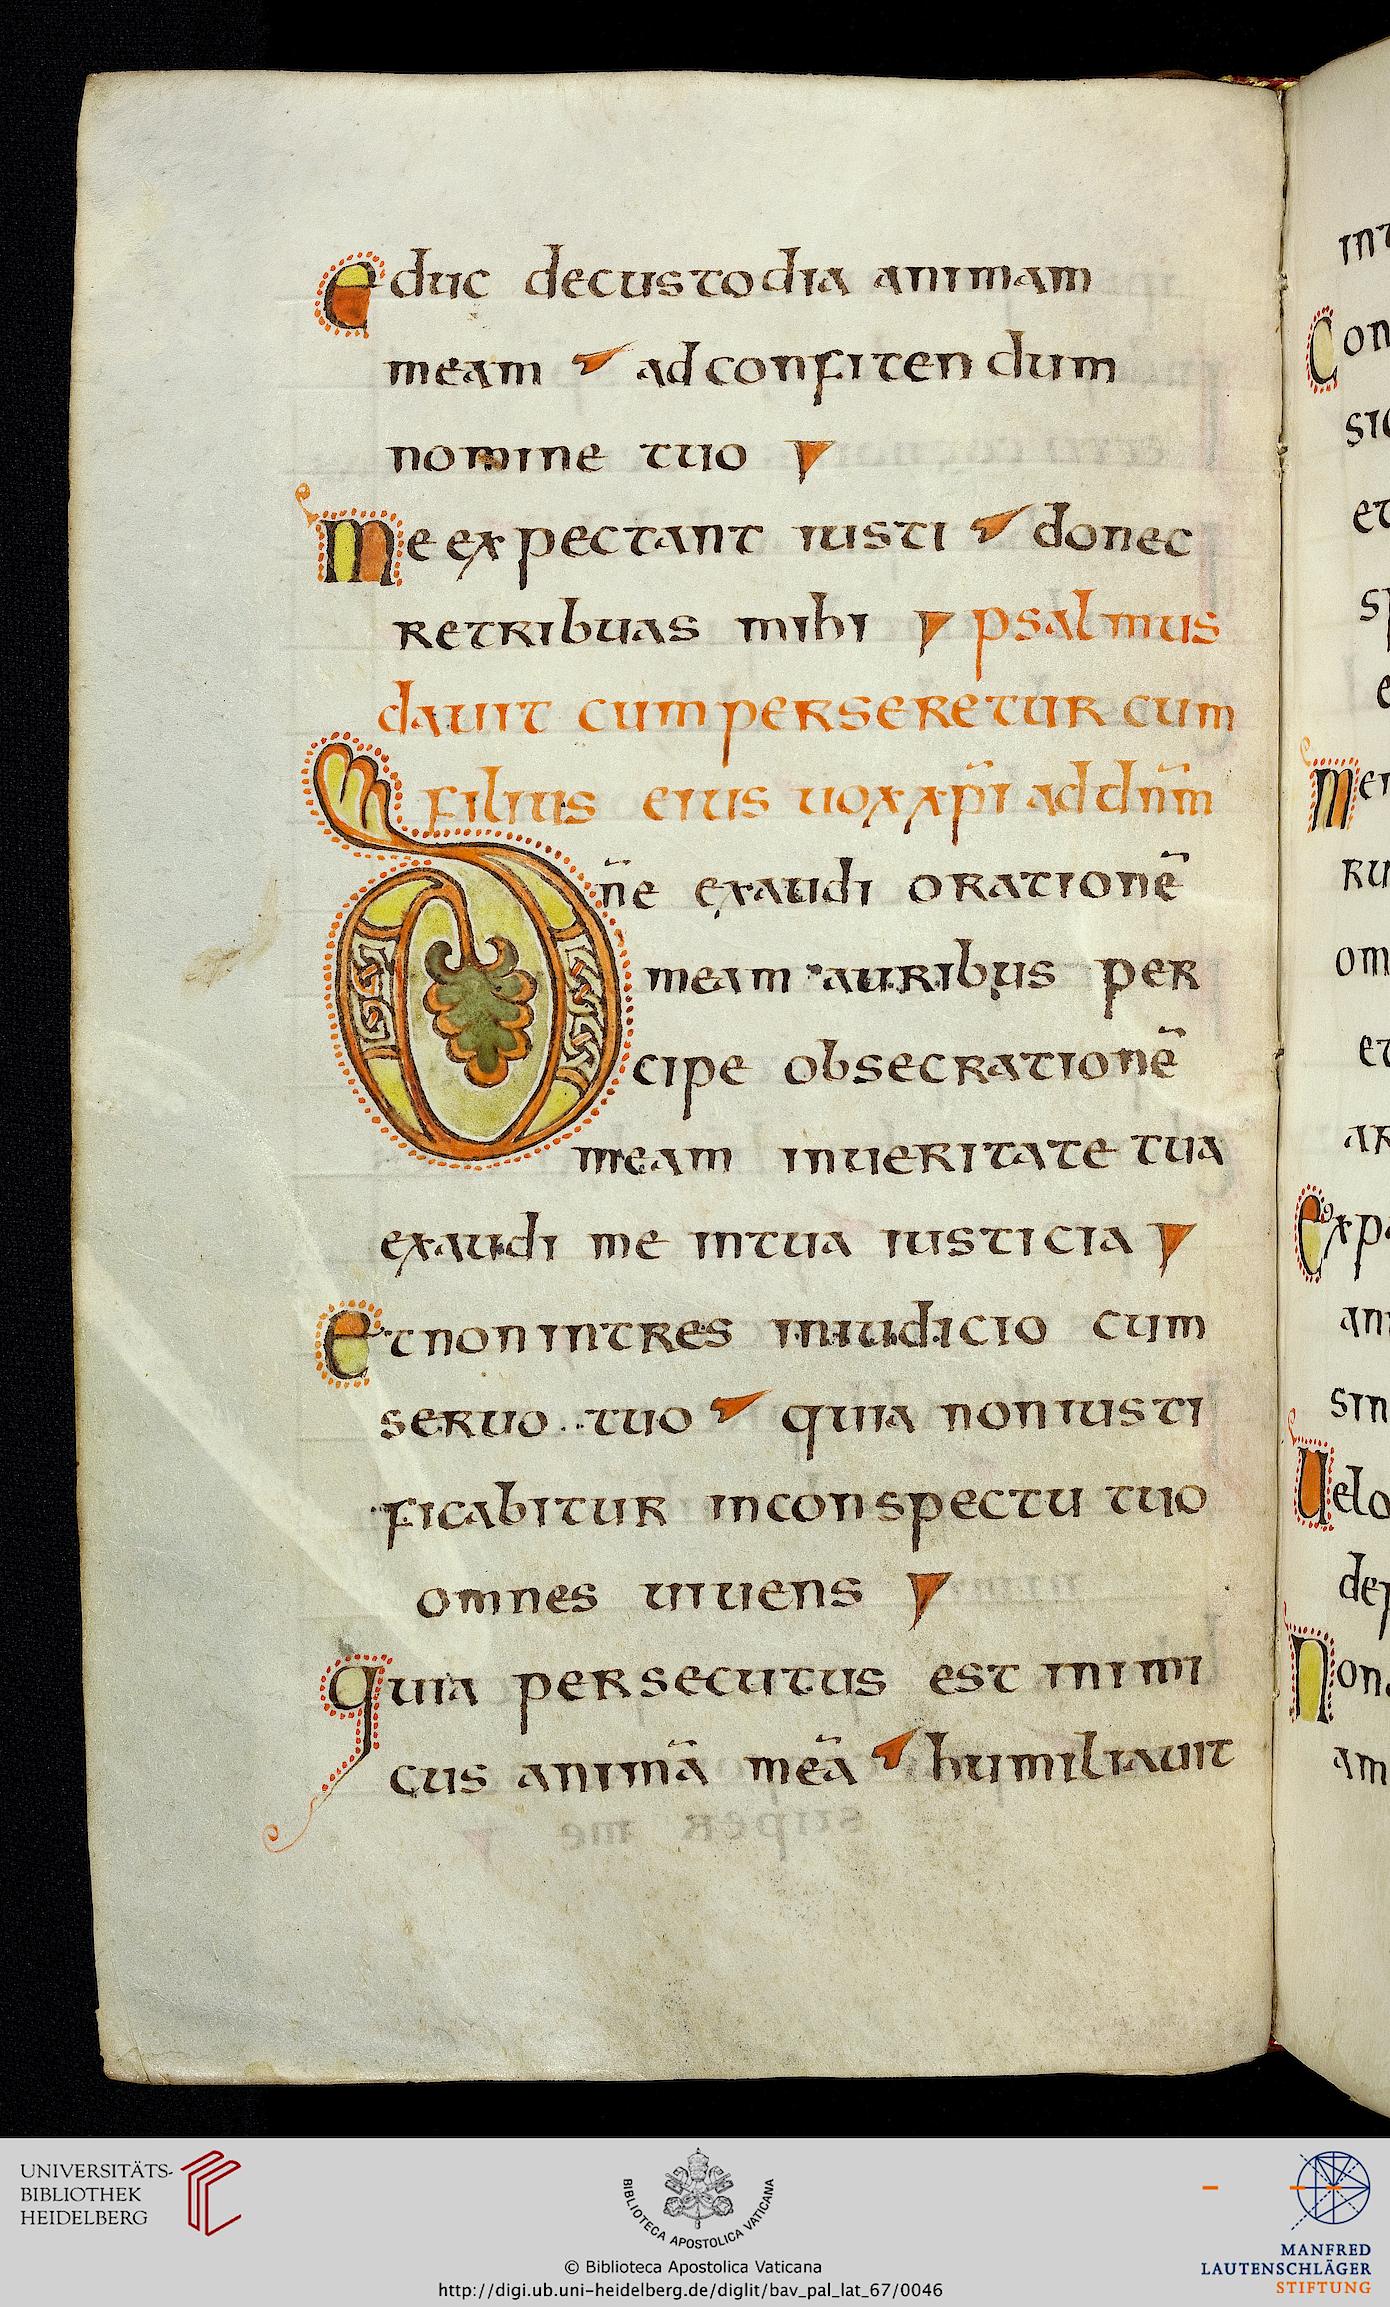 educ decustodia animam
meam ad confitendum
nomine tuo
me expectant iusti donec
retribuas mihi psalmus
dauit cum perseretur cum
filius eius uox xp̄i ad dnm̄
Dn̄e exaudi orationē
meam auribus per
cipe obsecrationē
meam inueritate tua
exaudi me intua iusticia
et non intres iniudicio cum
seruo tuo quia non iusti
ficabitur inconspectu tuo
omnes uiuens
quia persecutus est inimi
cus animā meā humiliauit
int
Con
sic
et
sp
e
mei
ru
om
et
ar
exp
ani
sin
uelo
dep
non
am
UNIVERSITÄTS-
BIBLIOTHEK
HEIDELBERG
BIBLIOTECA APOSTOLICA VATICANA
© Biblioteca Apostolica Vaticana
http://digi.ub.uni-heidelberg.de/diglit/bav_pal_lat_67/0046
MANFRED
LAUTENSCHLÄGER
STIFTUNG